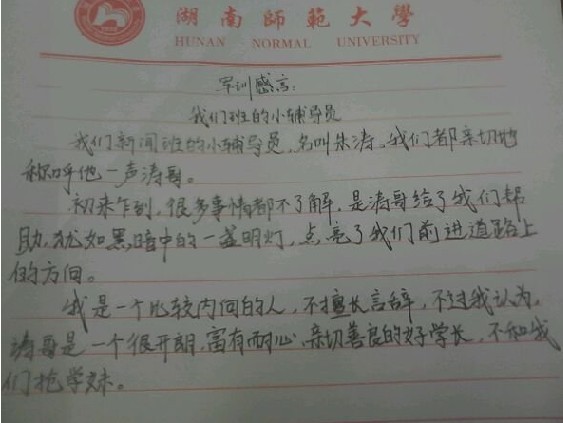 湖南師範大學
HUNAN NORMAL UNIVERSITY
军训感言:
我们班的小辅导员
我们新闻班的小辅导员,名叫朱涛,我们都亲切地
称呼他一声涛哥。
初来乍到,很多事情都不了解,是涛哥给了我们帮
助,犹如黑暗中的一盏明灯,点亮了我们前进道路上
的方向。
我是一个比较内向的人,不擅长言辞,不过我认为,
涛哥是一个很开朗,富有耐心,亲切善良的好学长,不和我
们抢学妹。